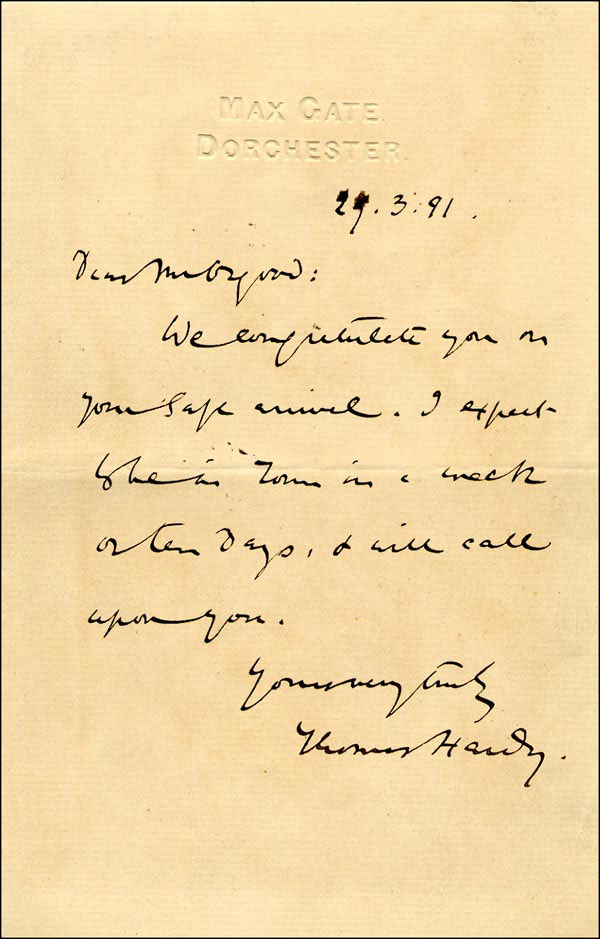 MAX GATE.
DORCHESTER.
29.3.91.
Dear Mr Osgood:
We congratulate you on
your safe arrival. I expect
to be in Town in a week
or ten days, & will call
upon you.
Yours very truly
Thomas Hardy.